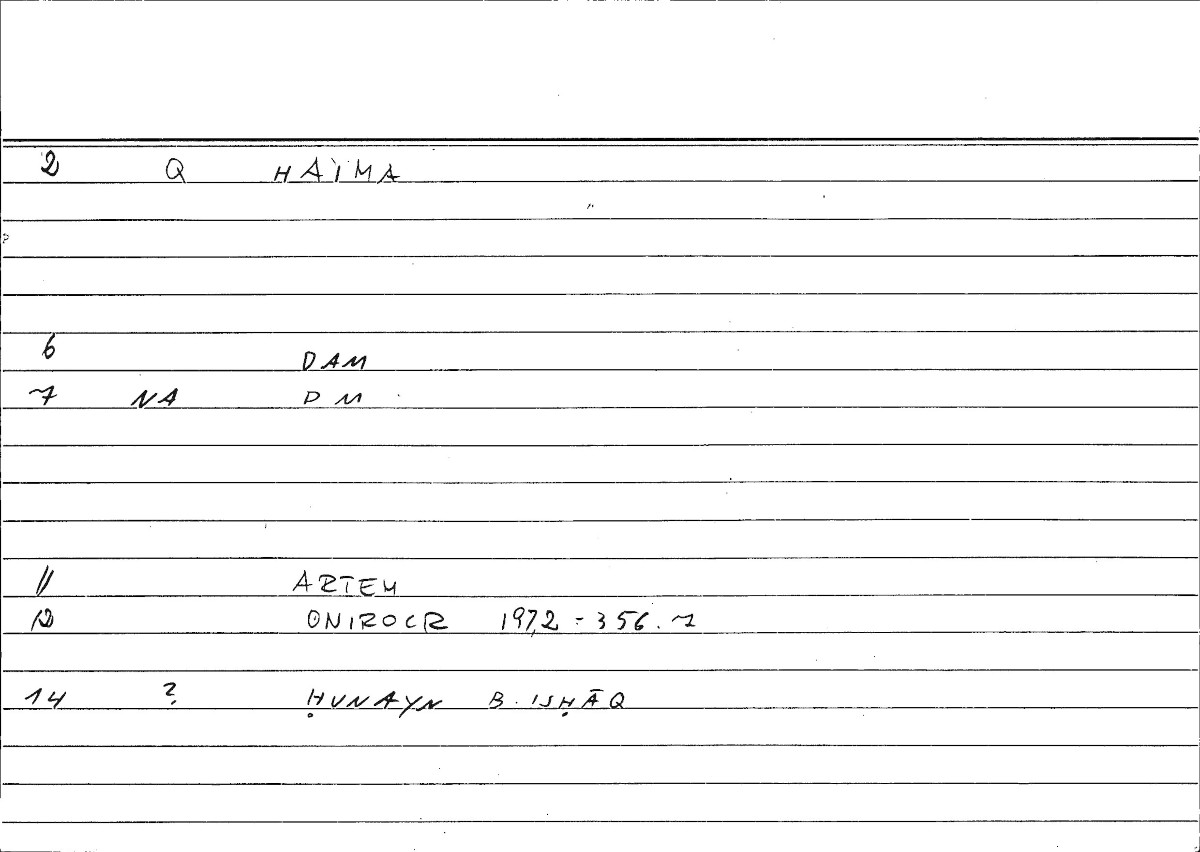 2 Q HAÌMA
6 DAM
7 NA DM
11 ARTEM
12 ONIROCR 197,2 = 356.7
14 ? ḤUNAYN B. ISḤĀQ